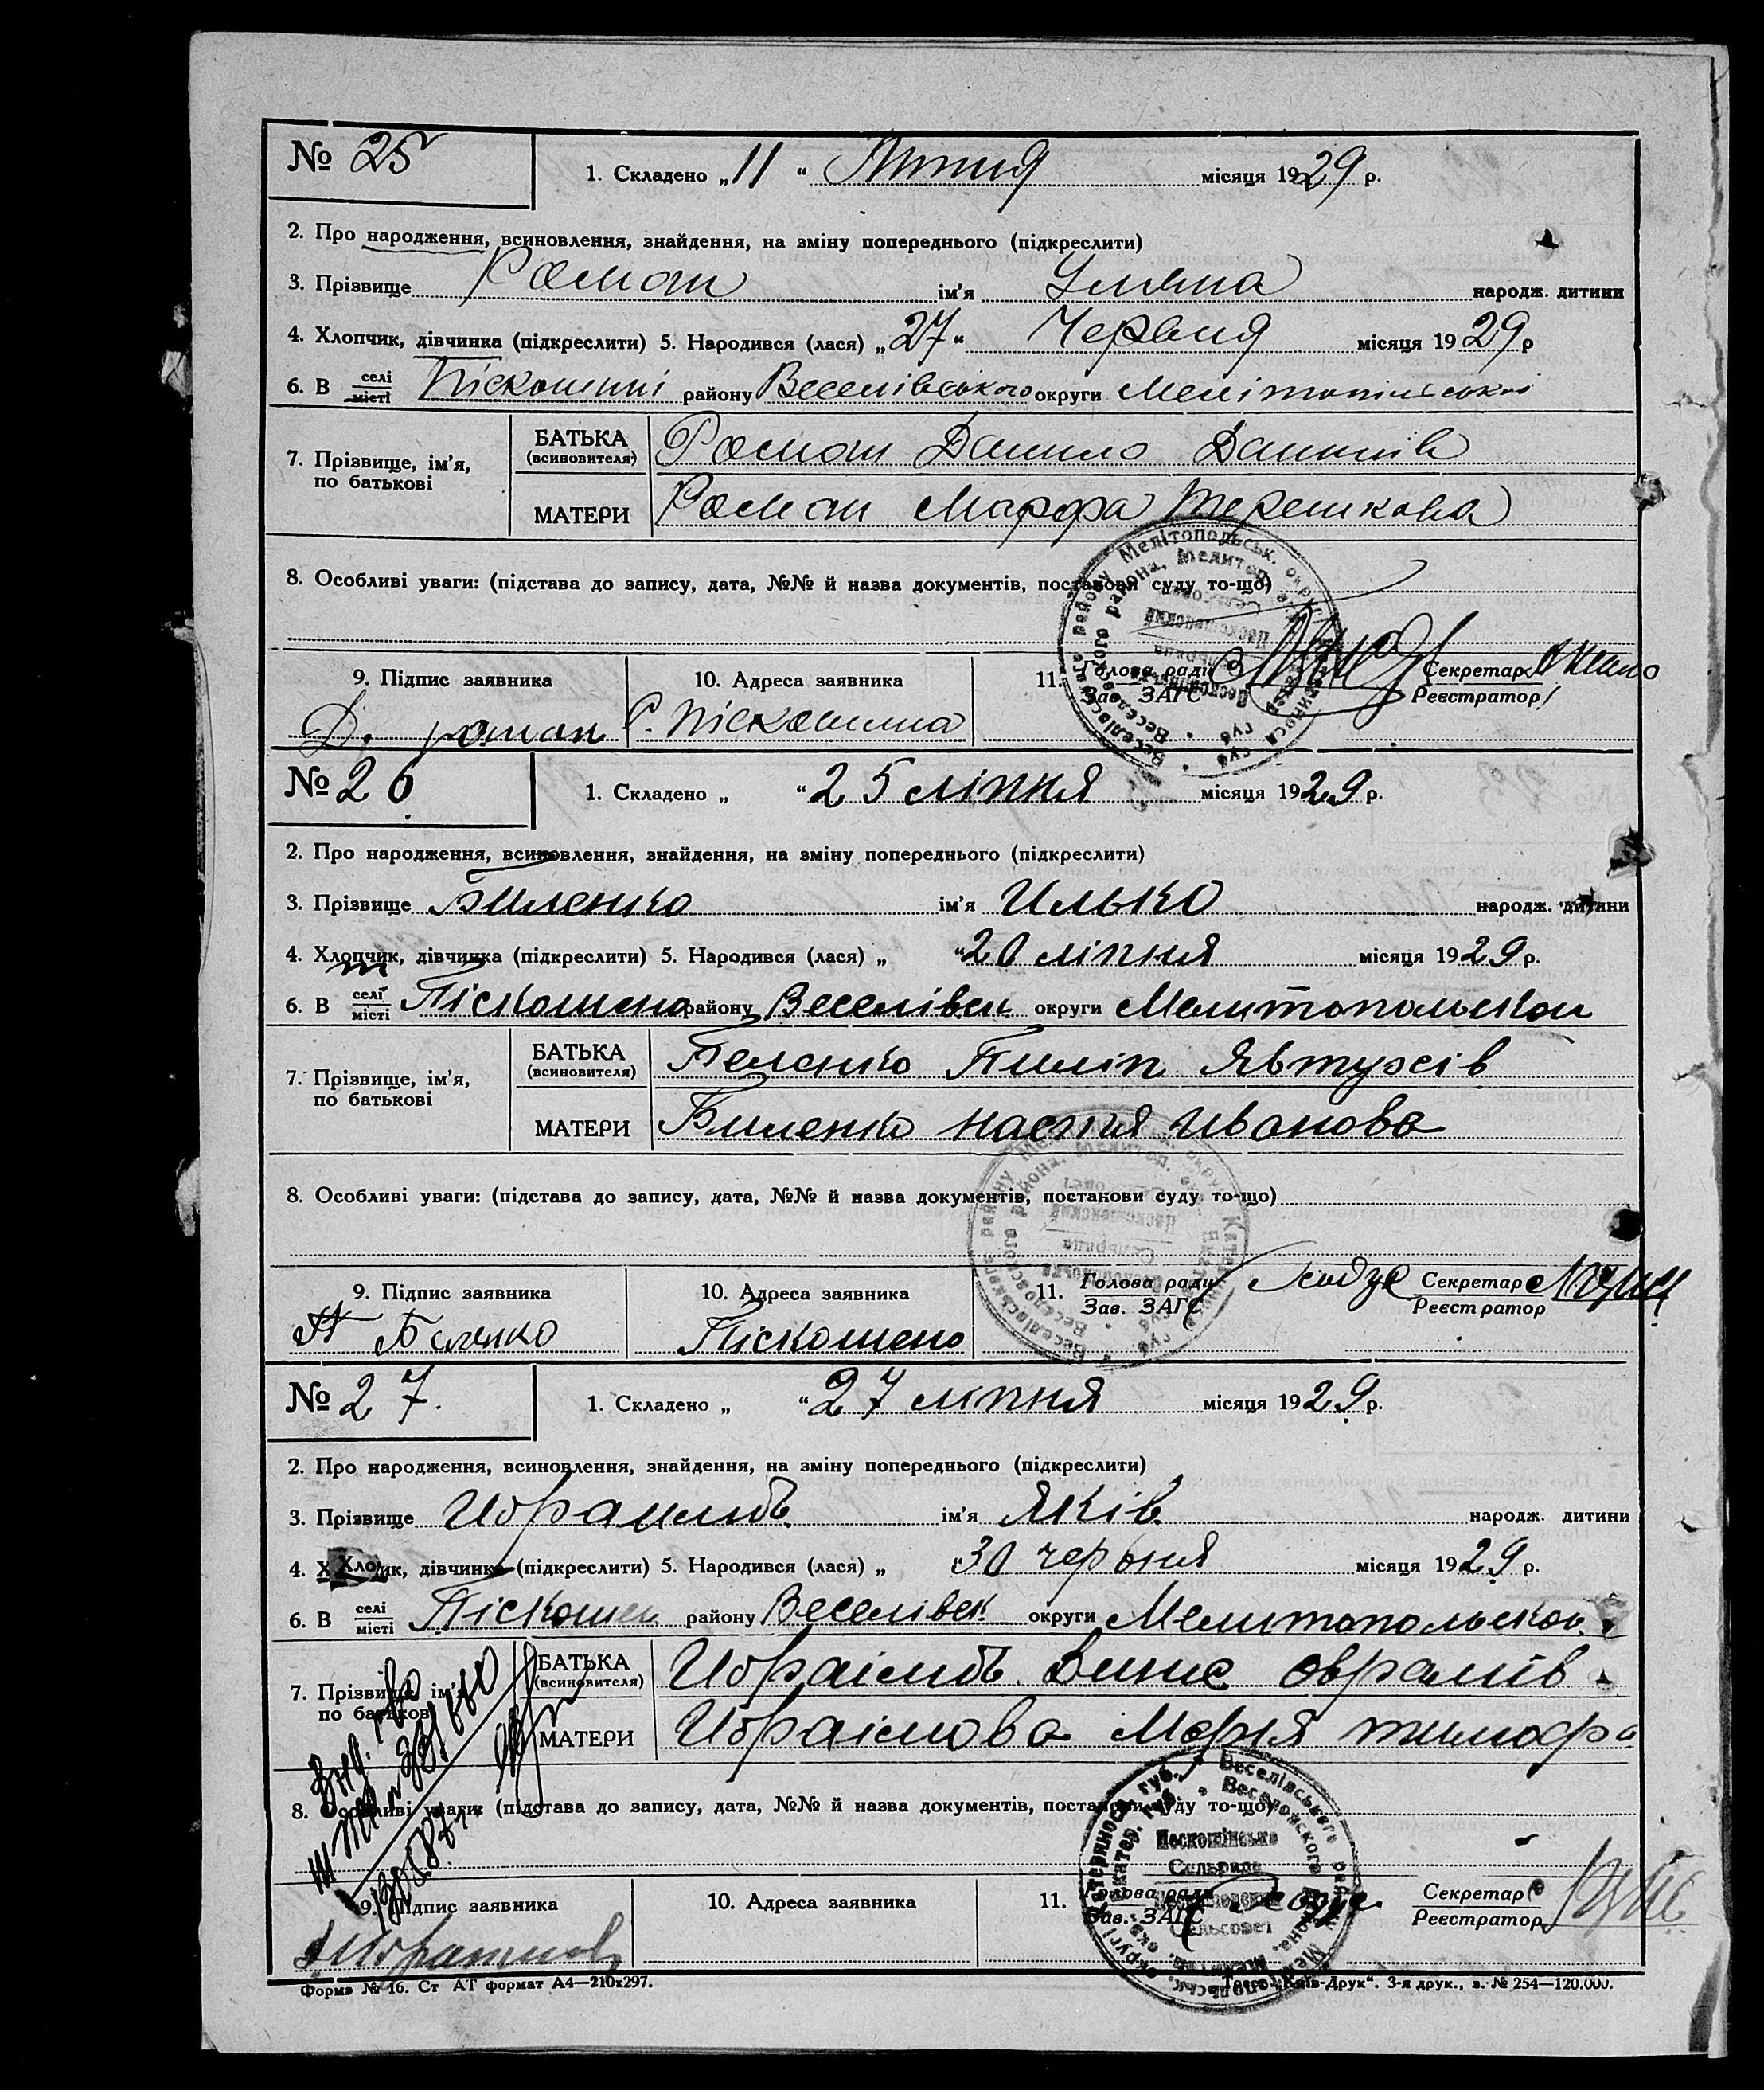 № 25 1. Складено „ 11 “ Липня місяця 1929 р.
2. Про народження, всиновлення, знайдення, на зміну попереднього (підкреслити)
3. Прізвище Роман ім’я Уляна народж. дитини
4. Хлопчик, дівчинка (підкреслити) 5. Народився (лася) „ 27 “ Червня місяця 1929 р
6. В селі місті Піскошині району Веселівського округи Мелітопільської
7. Прізвище, ім’я, по батькові
БАТЬКА (всиновителя) Роман Данило Данилів
МАТЕРИ Роман Марфа Терешкова
8. Особливі уваги: (підстава до запису, дата, №№ й назва документів, постанови суду то-що)
9. Підпис заявника 10. Адреса заявника 11. Голова ради Зав. ЗАГС Секретар Реєстратор
Д. роман С. Піскошина
№ 26 1. Складено „ “ 25 ліпня місяця 1929 р.
2. Про народження, всиновлення, знайдення, на зміну попереднього (підкреслити)
3. Прізвище Биленко ім’я Илько народж. дитини
4. Хлопчик, дівчинка (підкреслити) 5. Народився (лася) „ “ 20 ліпня місяця 1929 р.
6. В селі місті Піскошено району Веселівск округи Мелитопольскои
7. Прізвище, ім’я, по батькові
БАТЬКА (всиновителя) Беленко Пиліп Явтухів
МАТЕРИ Биленко настя Иванова
8. Особливі уваги: (підстава до запису, дата, №№ й назва документів, постанови суду то-що)
9. Підпис заявника 10. Адреса заявника 11. Голова ради Зав. ЗАГС Секретар Реєстратор
П Беленко Піскошено
№ 27. 1. Складено „ “ 27 липня місяця 1929 р.
2. Про народження, всиновлення, знайдення, на зміну попереднього (підкреслити)
3. Прізвище ім’я Яків народж. дитини
4. Хлопчик, дівчинка (підкреслити) 5. Народився (лася) „ “ 30 червня місяця 1929 р.
6. В селі місті Піскошен району Веселівск округи Мелитопольскои
7. Прізвище, ім’я, по батькові
БАТЬКА (всиновителя) Оврамів
МАТЕРИ Ибраімова Мария тимофа
8. Особливі уваги: (підстава до запису, дата, №№ й назва документів, постанови суду то-що)
Пескошінська
Сельрада
9. Підпис заявника 10. Адреса заявника 11. Голова ради Зав. ЗАГС Секретар Реєстратор
Форма № 16. Ст АТ формат А4—210х297. Трест „Київ-Друк“. 3-я друк., з. № 254—120.000.